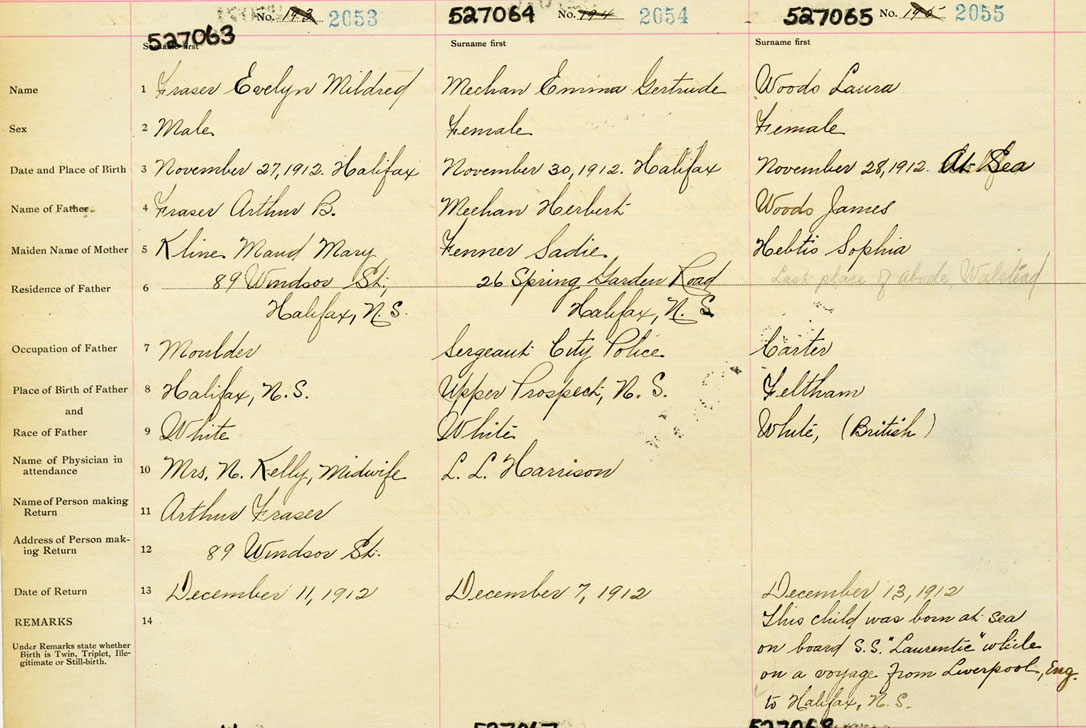 No. 193 2053 527064 No. 194 2054 527065 No. 195 2055
527063
Surname first Surname first Surname first
Name 1 Fraser Evelyn Mildred Meehan Emma Gertrude Woods Laura
Sex 2 Male Female Female
Date and Place of Birth 3 November 27, 1912. Halifax November 30, 1912. Halifax November 28, 1912. At Sea
Name of Father 4 Fraser Arthur B. Meehan Herbert Woods James
Maiden Name of Mother 5 Kline Maud Mary Fenner Sadie Sophia
Residence of Father 6 89 Windsor St, 26 Spring Garden Road Last place of abode,
Halifax, N.S. Halifax, N.S
Occupation of Father 7 Moulder Sergeant City Police Carter
Place of Birth of Father 8 Halifax, N.S. Upper Prospect, N.S. Feltham
and
Race of Father 9 White White White, (British)
Name of Physician in
attendance 10 Mrs. N. Kelly, Midwife L. L. Harrison
Name of Person making
Return 11 Arthur Fraser
Address of Person mak-
ing Return 12 89 Windsor St.
Date of Return 13 December 11, 1912 December 7, 1912 December 13, 1912
REMARKS 14 This child was born at sea
Under Remarks state whether
Birth is Twin, Triplet, Ille-
gitimate or Still-birth.
on board S.S. "Laurentic" while
on a voyage from Liverpool, Eng.
to Halifax, N.S.
527067 527068